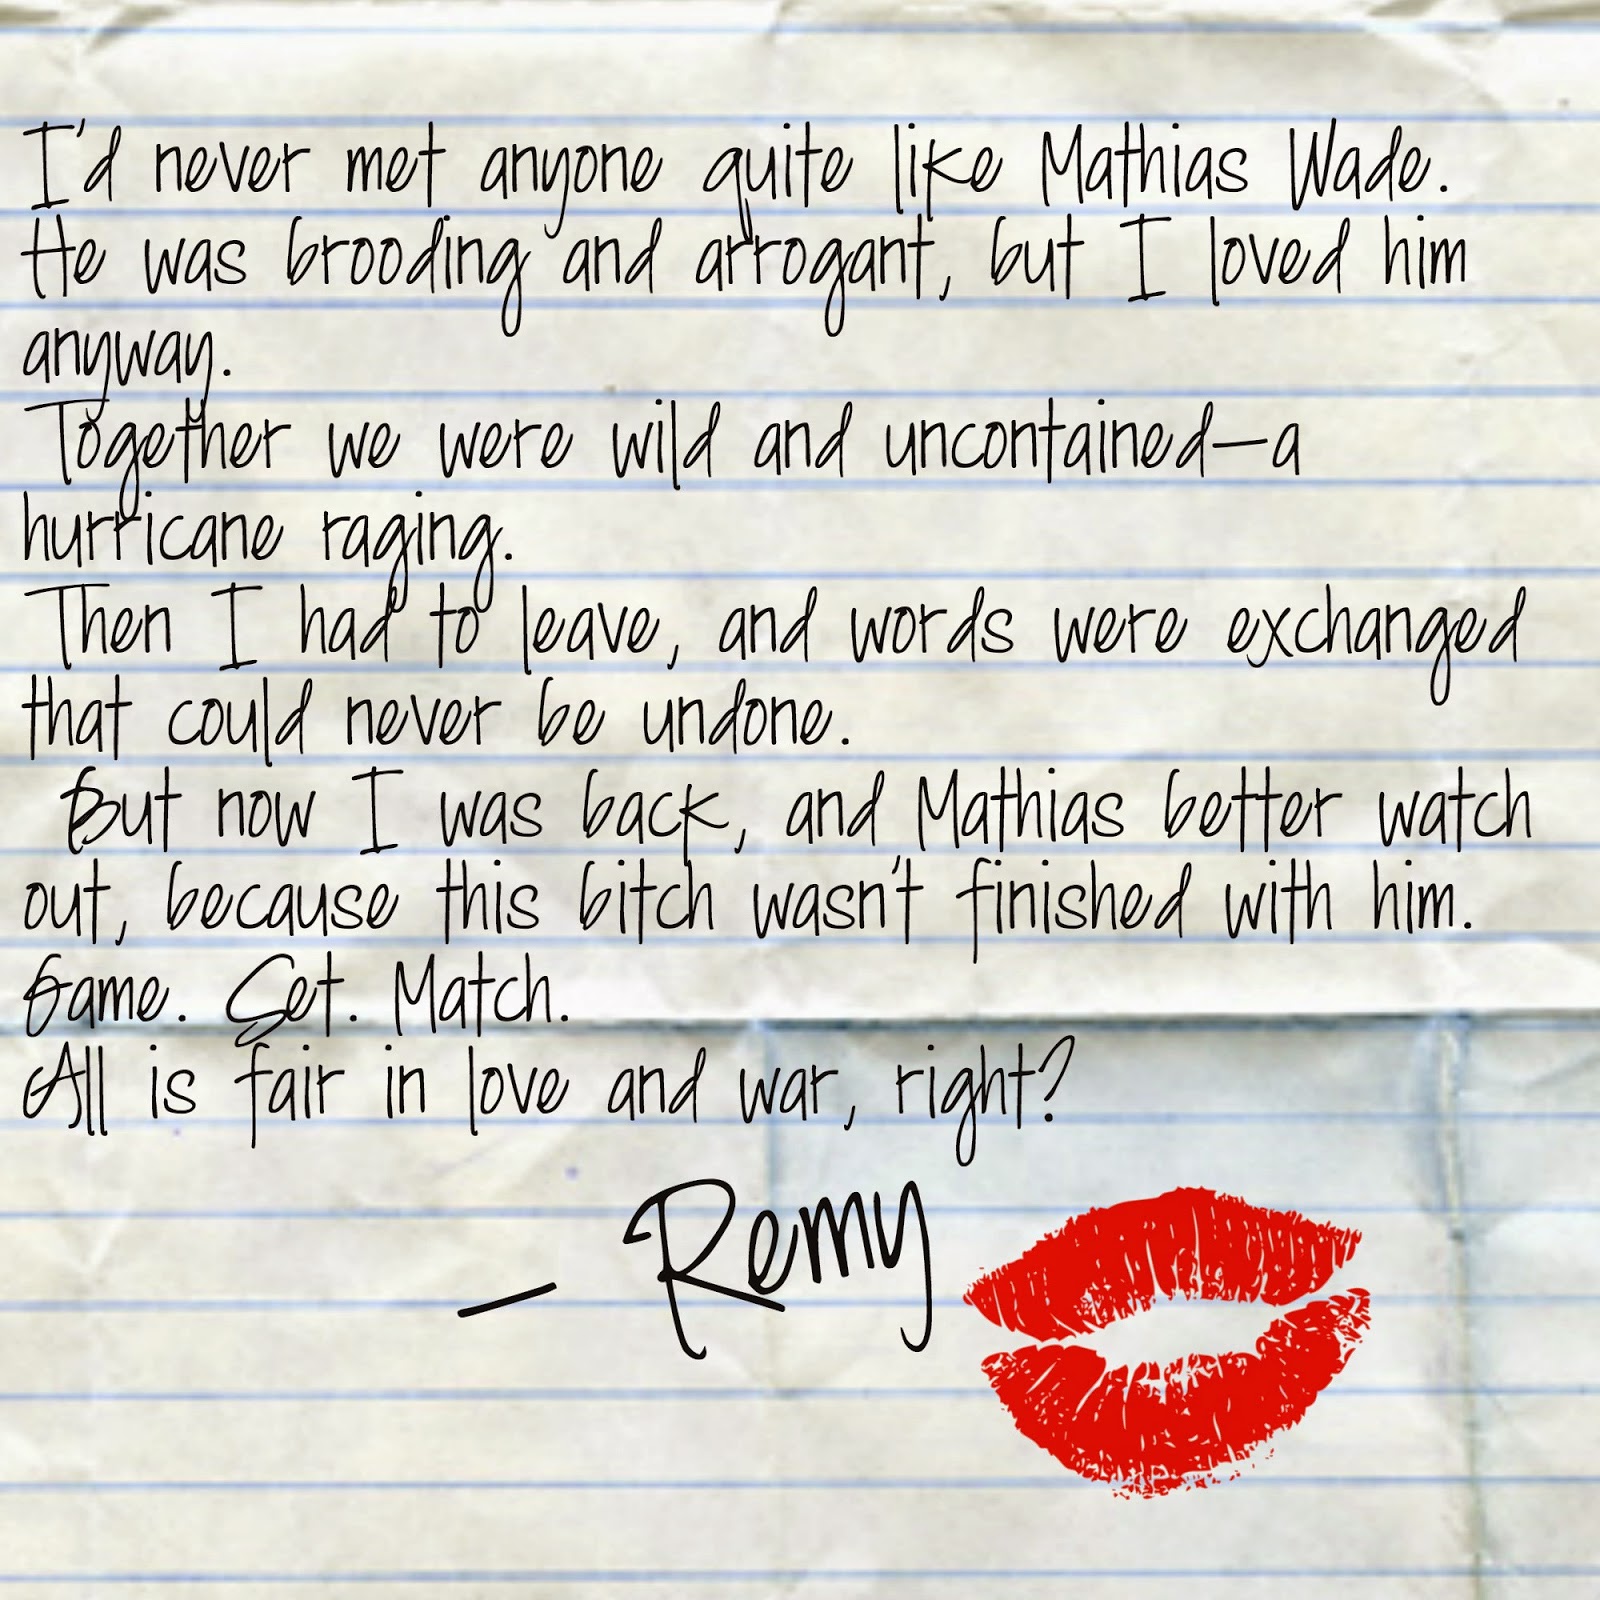 I'd never met anyone quite like Mathias Wade.
He was brooding and arrogant, but I loved him
anyway.
Together we were wild and uncontained—a
hurricane raging.
Then I had to leave, and words were exchanged
that could never be undone.
But now I was back, and Mathias better watch
out, because this bitch wasn't finished with him.
Game. Set. Match.
All is fair in love and war, right?
— Remy